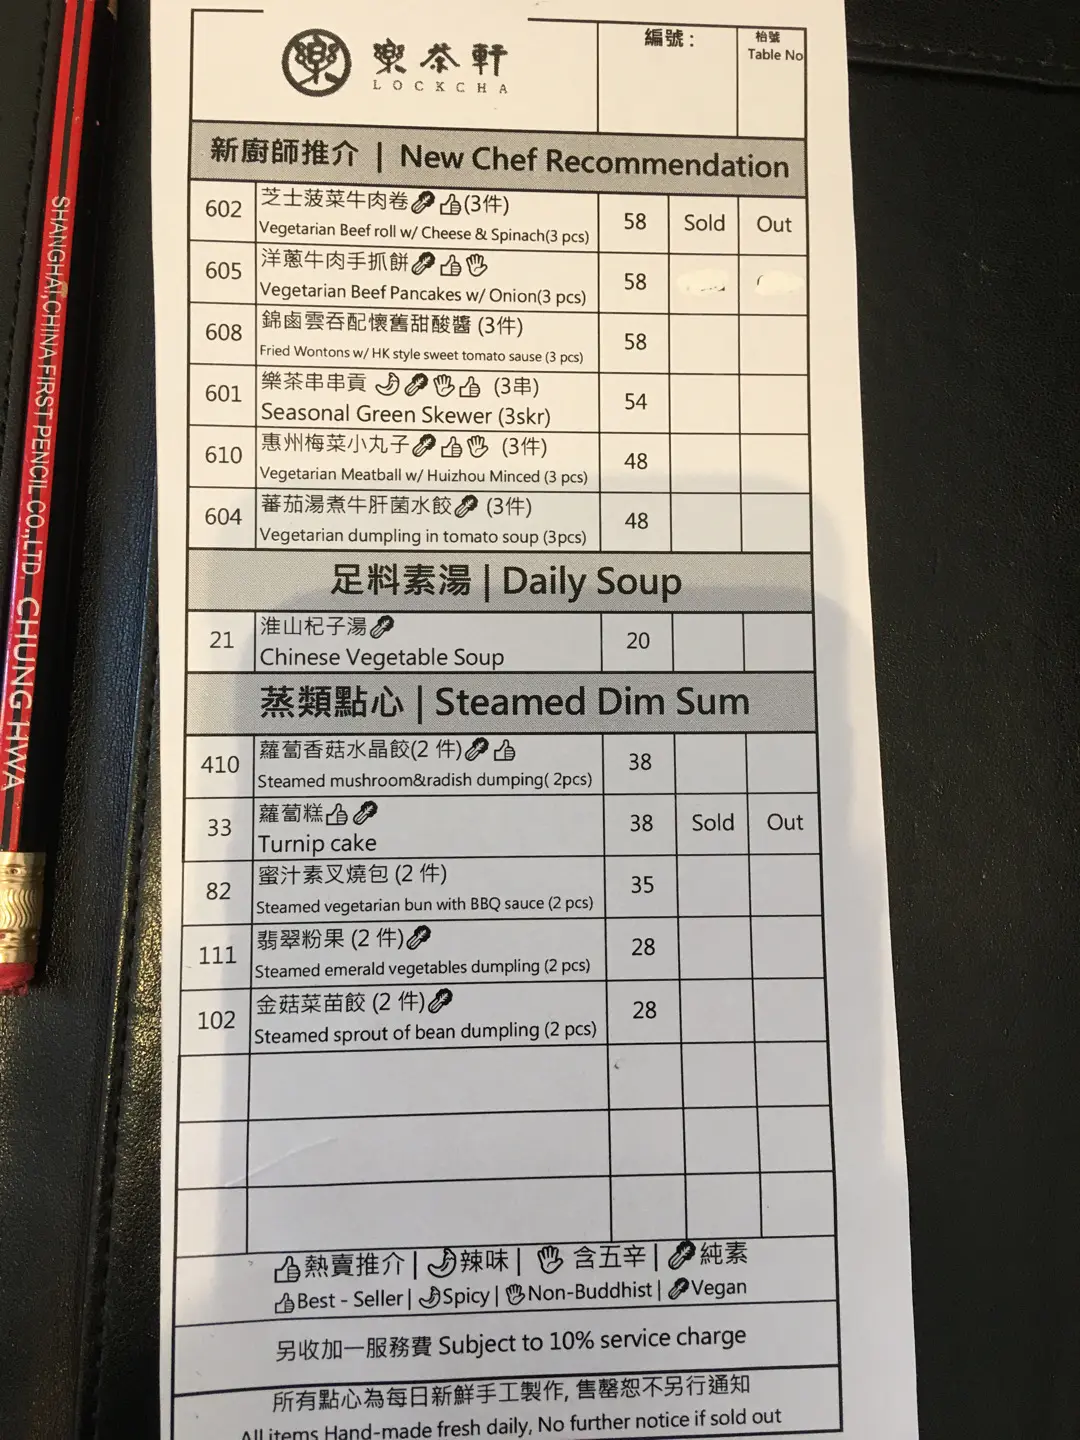 樂茶軒
LOCKCHA
編號：
枱號
Table No
新廚師推介 | New Chef Recommendation
602 芝士菠菜牛肉卷 (3件)
Vegetarian Beef roll w/ Cheese & Spinach(3 pcs) 58 Sold Out
605 洋蔥牛肉手抓餅
Vegetarian Beef Pancakes w/ Onion(3 pcs) 58
608 錦鹵雲吞配懷舊甜酸醬 (3件)
Fried Wontons w/ HK style sweet tomato sause (3 pcs) 58
601 樂茶串串貢 (3串)
Seasonal Green Skewer (3skr) 54
610 惠州梅菜小丸子 (3件)
Vegetarian Meatball w/ Huizhou Minced (3 pcs) 48
604 蕃茄湯煮牛肝菌水餃 (3件)
Vegetarian dumpling in tomato soup (3pcs) 48
足料素湯 | Daily Soup
21 淮山杞子湯
Chinese Vegetable Soup 20
蒸類點心 | Steamed Dim Sum
410 蘿蔔香菇水晶餃(2 件)
Steamed mushroom&radish dumping( 2pcs) 38
33 蘿蔔糕
Turnip cake 38 Sold Out
82 蜜汁素叉燒包 (2 件)
Steamed vegetarian bun with BBQ sauce (2 pcs) 35
111 翡翠粉果 (2 件)
Steamed emerald vegetables dumpling (2 pcs) 28
102 金菇菜苗餃 (2 件)
Steamed sprout of bean dumpling (2 pcs) 28
熱賣推介 | 辣味 | 含五辛 | 純素
Best - Seller | Spicy | Non-Buddhist | Vegan
另收加一服務費 Subject to 10% service charge
所有點心為每日新鮮手工製作, 售罄恕不另行通知
All items Hand-made fresh daily, No further notice if sold out
SHANGHAI, CHINA FIRST PENCIL CO., LTD. CHUNG HWA